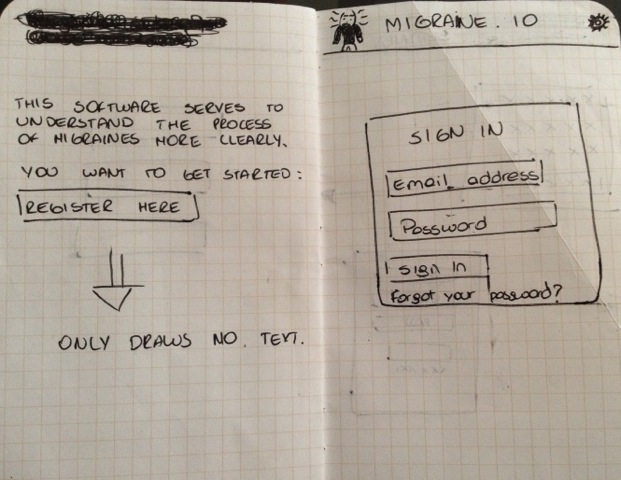 THIS SOFTWARE SERVES TO
UNDERSTAND THE PROCESS
OF MIGRAINES MORE CLEARLY.
YOU WANT TO GET STARTED:
REGISTER HERE
ONLY DRAWS NO. TEXT.
MIGRAINE.IO
SIGN IN
Email address
Password
Sign in
Forgot your password?